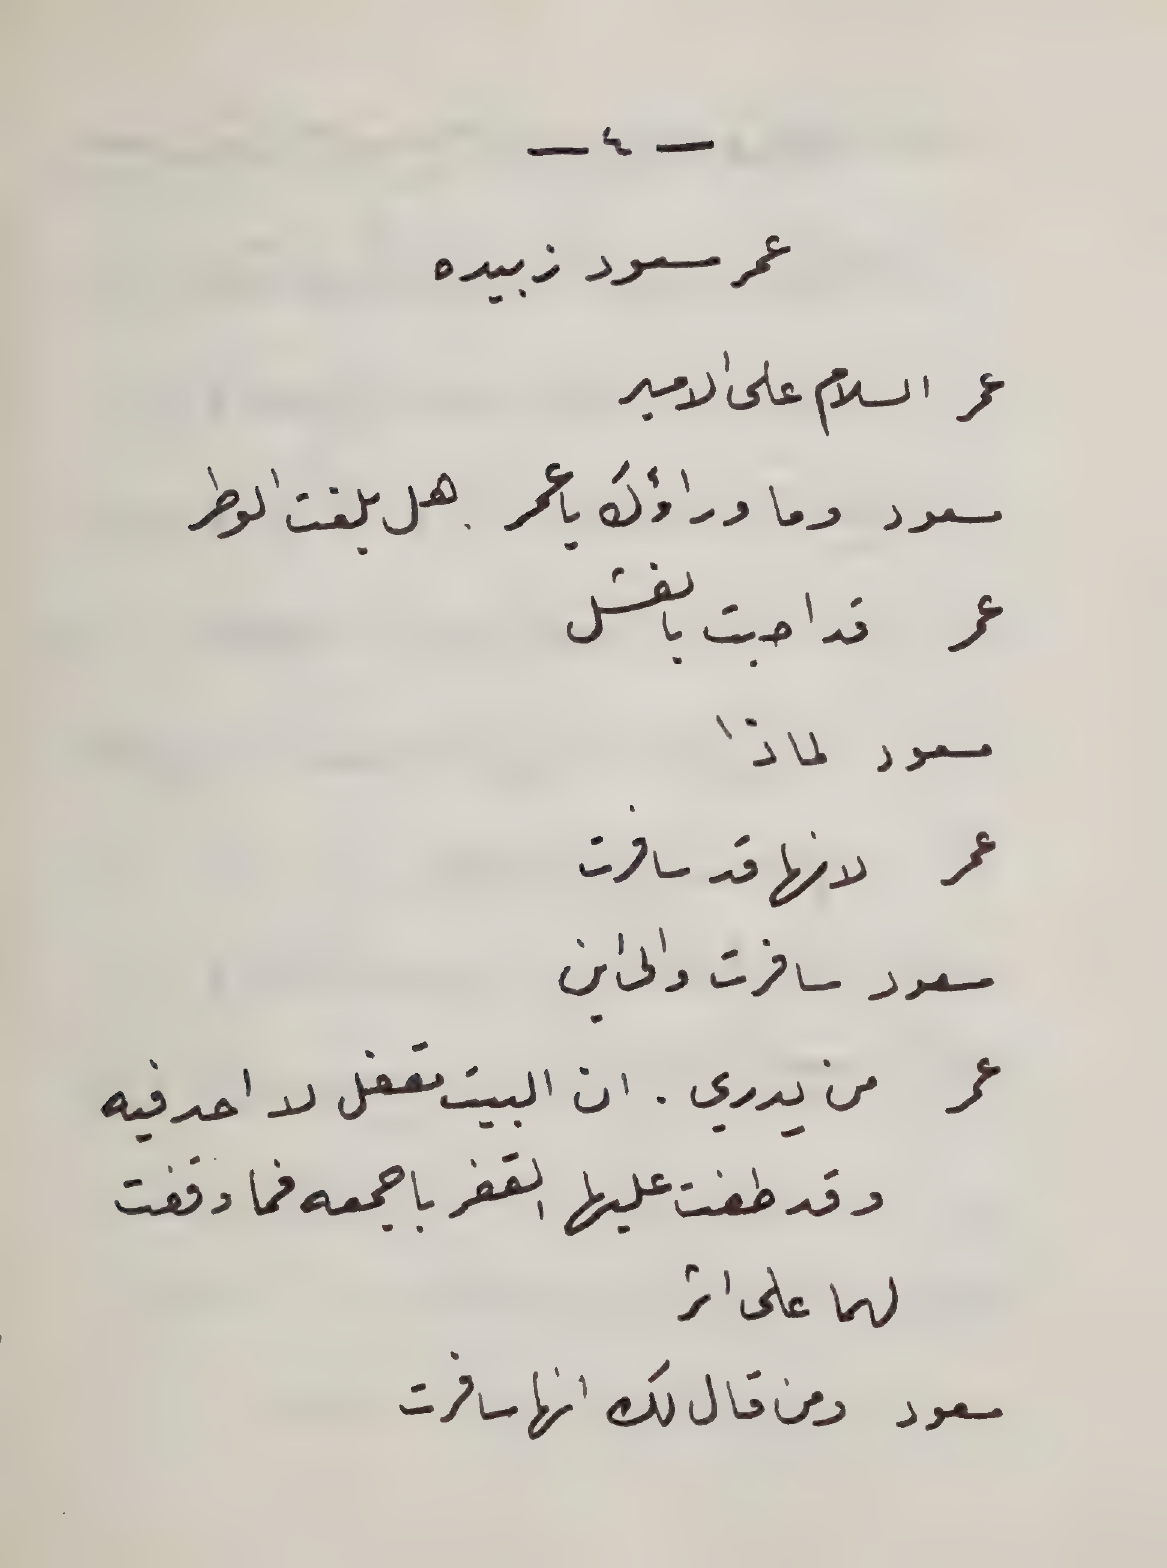 — ٤ —
عمر مسعود زبيده
عمر السلام على الامير
مسعود وما وراؤك يا عمر . هل بلغت الوطر
عمر قد احبت بالفشل
مسعود لماذا
عمر لانها قد سافرت
مسعود سافرت والى اين
عمر من يدري . ان البيت مقفل لا احد فيه
وقد طفت عليها القفر باجمعه فما وقفت
لهما على اثر
مسعود ومن قال لك انها سافرت